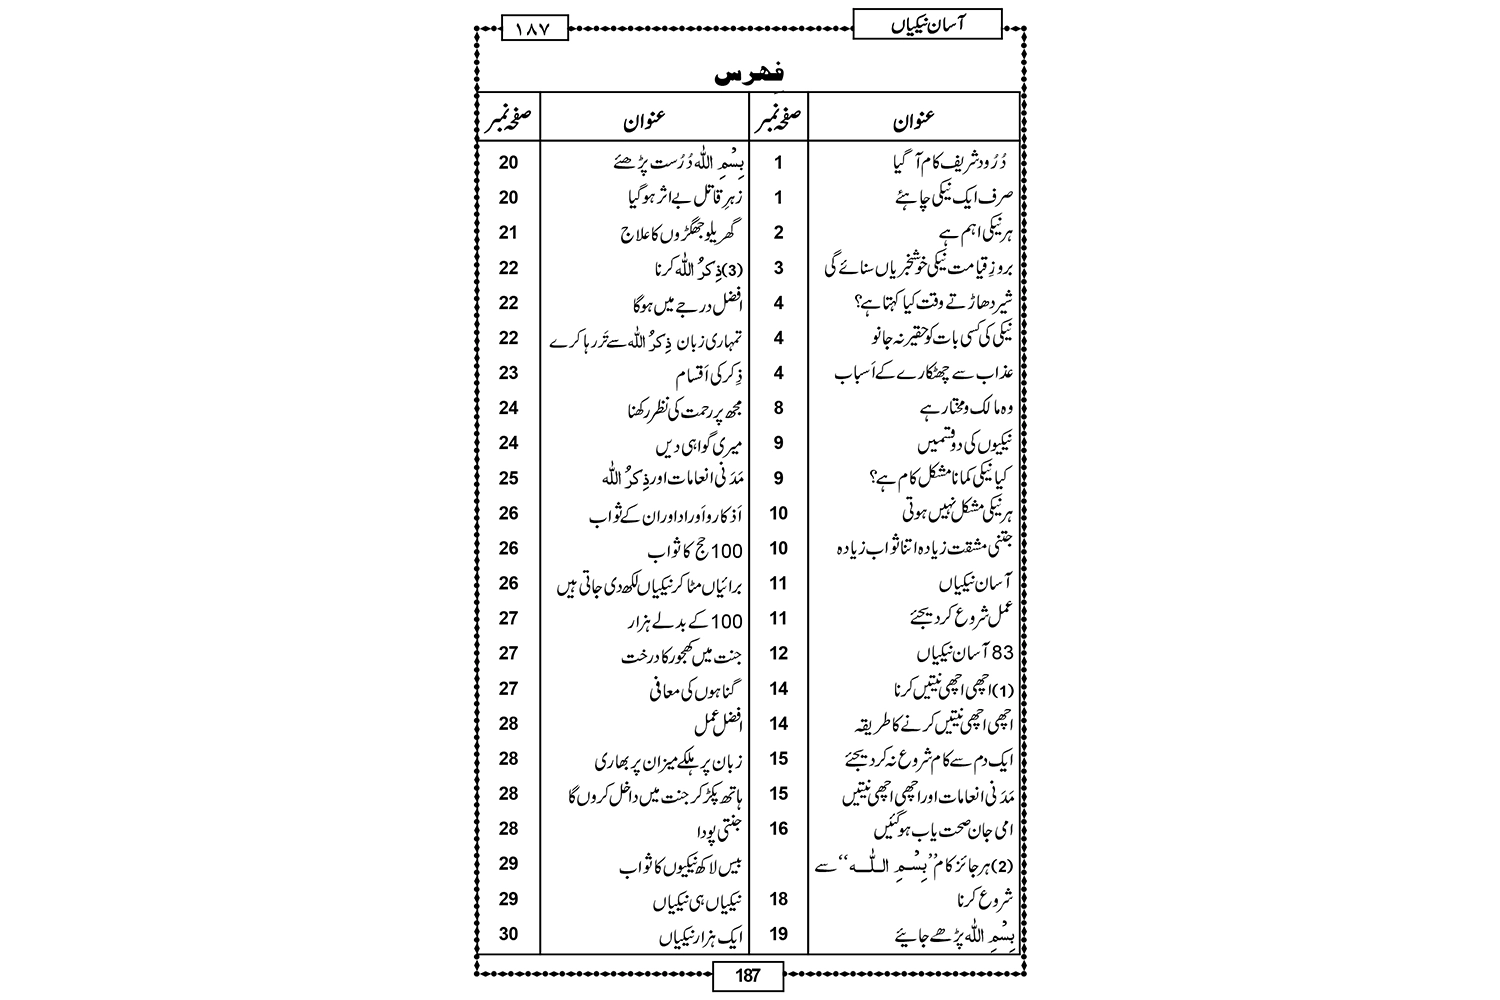 آسان نیکیاں
۱۸۷
فِہرس
عنوان صفحہ نمبر عنوان صفحہ نمبر
دُرُود شریف کام آ گیا 1
صرف ایک نیکی چاہئے 1
ہر نیکی اہم ہے 2
بروزِ قیامت نیکی خوشخبریاں سنائے گی 3
شیر دھاڑتے وقت کیا کہتا ہے؟ 4
نیکی کی کسی بات کو حقیر نہ جانو 4
عذاب سے چھٹکارے کے اَسباب 4
وہ مالک و مختار ہے 8
نیکیوں کی دو قسمیں 9
کیا نیکی کمانا مشکل کام ہے؟ 9
ہر نیکی مشکل نہیں ہوتی 10
جتنی مشقت زیادہ اتنا ثواب زیادہ 10
آسان نیکیاں 11
عمل شروع کر دیجئے 11
83 آسان نیکیاں 12
(1) اچھی اچھی نیتیں کرنا 14
اچھی اچھی نیتیں کرنے کا طریقہ 14
ایک دم سے کام شروع نہ کر دیجئے 15
مَدَنی انعامات اور اچھی اچھی نیتیں 15
امی جان صحت یاب ہو گئیں 16
(2) ہر جائز کام ’’بِسْمِ اللّٰہ‘‘ سے
شروع کرنا 18
بِسْمِ اللّٰہ پڑھے جایئے 19
بِسْمِ اللّٰہ دُرُست پڑھئے 20
زہرِ قاتل بے اثر ہو گیا 20
گھریلو جھگڑوں کا علاج 21
(3) ذِکرُ اللّٰہ کرنا 22
افضل درجے میں ہوگا 22
تمہاری زبان ذِکرُ اللّٰہ سے تَر رہا کرے 22
ذِکر کی اَقسام 23
مجھ پر رحمت کی نظر رکھنا 24
میری گواہی دیں 24
مَدَنی انعامات اور ذِکرُ اللّٰہ 25
اَذکار و اَوراد اور ان کے ثواب 26
100 حج کا ثواب 26
برائیاں مٹا کر نیکیاں لکھ دی جاتی ہیں 26
100 کے بدلے ہزار 27
جنت میں کھجور کا درخت 27
گناہوں کی معافی 27
افضل عمل 28
زبان پر ہلکے میزان پر بھاری 28
ہاتھ پکڑ کر جنت میں داخل کروں گا 28
جنتی پودا 28
بیس لاکھ نیکیوں کا ثواب 29
نیکیاں ہی نیکیاں 29
ایک ہزار نیکیاں 30
187